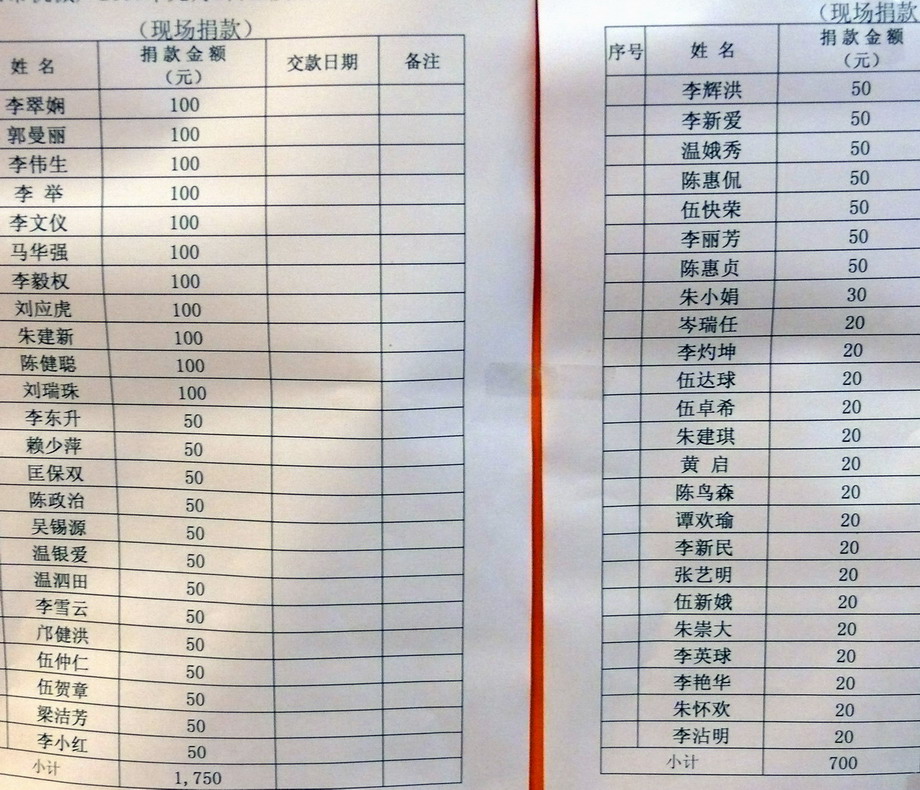 （现场捐款）
姓 名 捐款金额（元） 交款日期 备注
李翠娴 100
郭曼丽 100
李伟生 100
李 举 100
李文仪 100
马华强 100
李毅权 100
刘应虎 100
朱建新 100
陈健聪 100
刘瑞珠 100
李东升 50
赖少萍 50
匡保双 50
陈政治 50
吴锡源 50
温银爱 50
温泗田 50
李雪云 50
邝健洪 50
伍仲仁 50
伍贺章 50
梁洁芳 50
李小红 50
小计 1,750
（现场捐款
序号 姓 名 捐款金额（元）
李辉洪 50
李新爱 50
温娥秀 50
陈惠侃 50
伍快荣 50
李丽芳 50
陈惠贞 50
朱小娟 30
岑瑞任 20
李灼坤 20
伍达球 20
伍卓希 20
朱建琪 20
黄 启 20
陈鸟森 20
谭欢瑜 20
李新民 20
张艺明 20
伍新娥 20
朱崇大 20
李英球 20
李艳华 20
朱怀欢 20
李沾明 20
小计 700